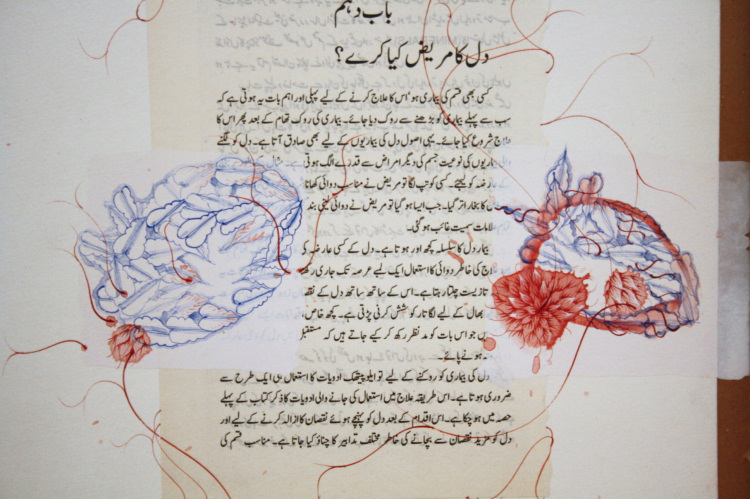 باب دہم
دل کا مریض کیا کرے؟
کسی بھی قسم کی بیماری ہو اس کا علاج کرنے کے لیے پہلی اور اہم بات یہ ہوتی ہے کہ
سب سے پہلے بیماری کو بڑھنے سے روک دیا جائے۔ بیماری کی روک تھام کے بعد پھر اس کا
علاج شروع کیا جائے۔ یہی اصول دل کی بیماریوں کے لیے بھی صادق آتا ہے۔ دل کو لگنے
بیماریوں کی نوعیت جسم کی دیگر امراض سے قدرے الگ ہوتی ہے۔ مثال
عارضہ کو لیجئے۔ کسی کو جب لگا تو مریض نے مناسب دوائی کھانا
کا بخار اتر گیا۔ جب ایسا ہو گیا تو مریض نے دوائی لینی بند
علامات سمیت غائب ہو گئی۔
بیمار دل کا سلسلہ کچھ اور ہوتا ہے۔ دل کے کسی عارضہ کی
علاج کی خاطر دوائی کا استعمال ایک لمبے عرصہ تک جاری رکھ
تا زیست چلتا رہتا ہے۔ اس کے ساتھ ساتھ دل کے نقصا
بحال کے لیے لگاتار کوشش کرنی پڑتی ہے۔ کچھ خاص
جو اس بات کو مد نظر رکھ کر کیے جاتے ہیں کہ مستقبل
نہ ہونے پائے۔
دل کی بیماری کو روکنے کے لیے تو ایلوپیتھک ادویات کا استعمال ہی ایک طرح سے
ضروری ہوتا ہے۔ اس طریقہ علاج میں استعمال کی جانے والی ادویات کا ذکر کتاب کے پہلے
حصہ میں ہو چکا ہے۔ اس اقدام کے بعد دل کو پہنچے ہوئے نقصان کا ازالہ کرنے کے لیے اور
دل کو مزید نقصان سے بچانے کی خاطر مختلف تدابیر کا چناؤ کیا جاتا ہے۔ مناسب قسم کی